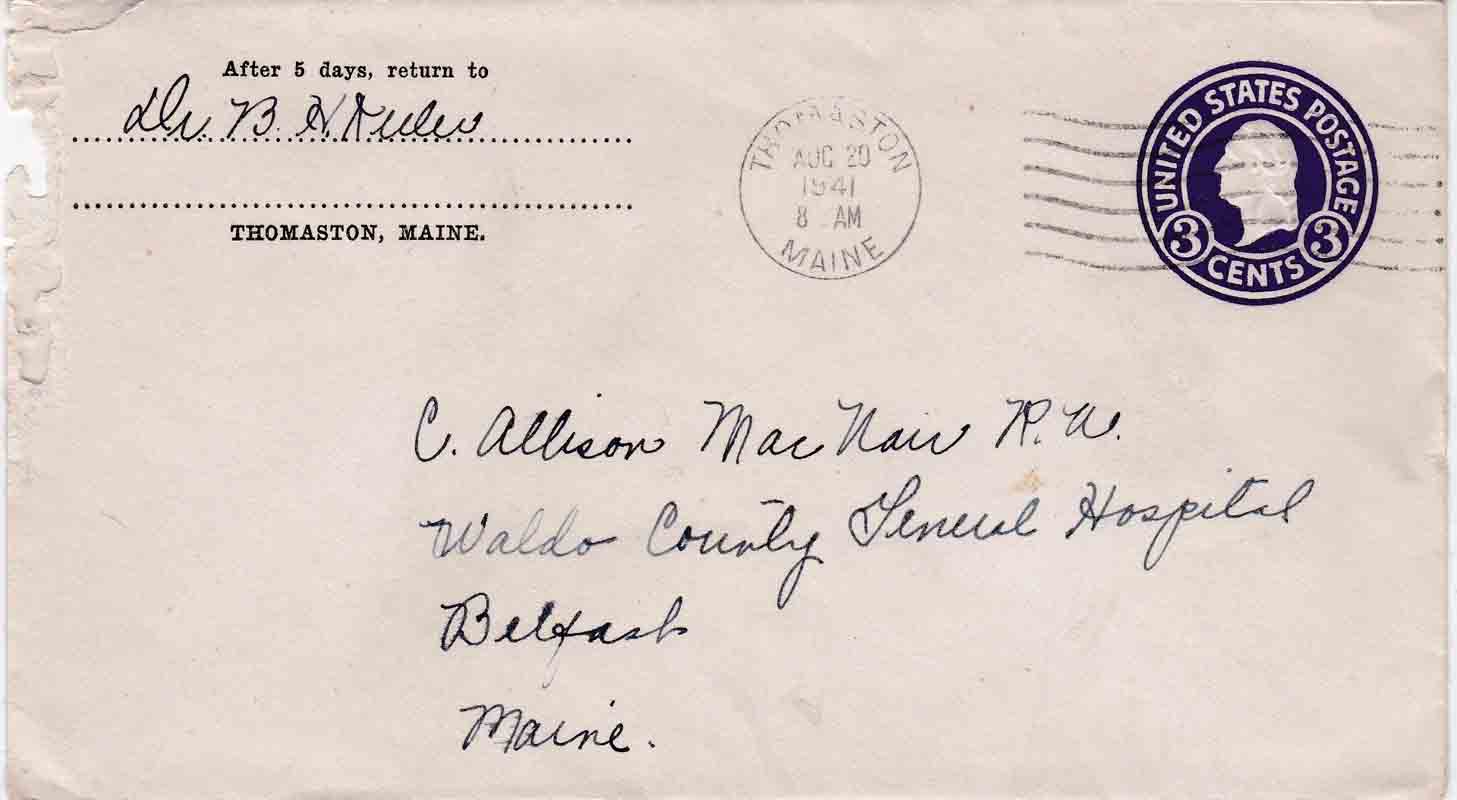 After 5 days, return to
Dr. B. H. Keller
THOMASTON, MAINE.
THOMASTON
AUG 20
1941
8 AM
MAINE
UNITED STATES POSTAGE
3 CENTS 3
C. Allison MacNair R.N.
Waldo County General Hospital
Belfast
Maine.